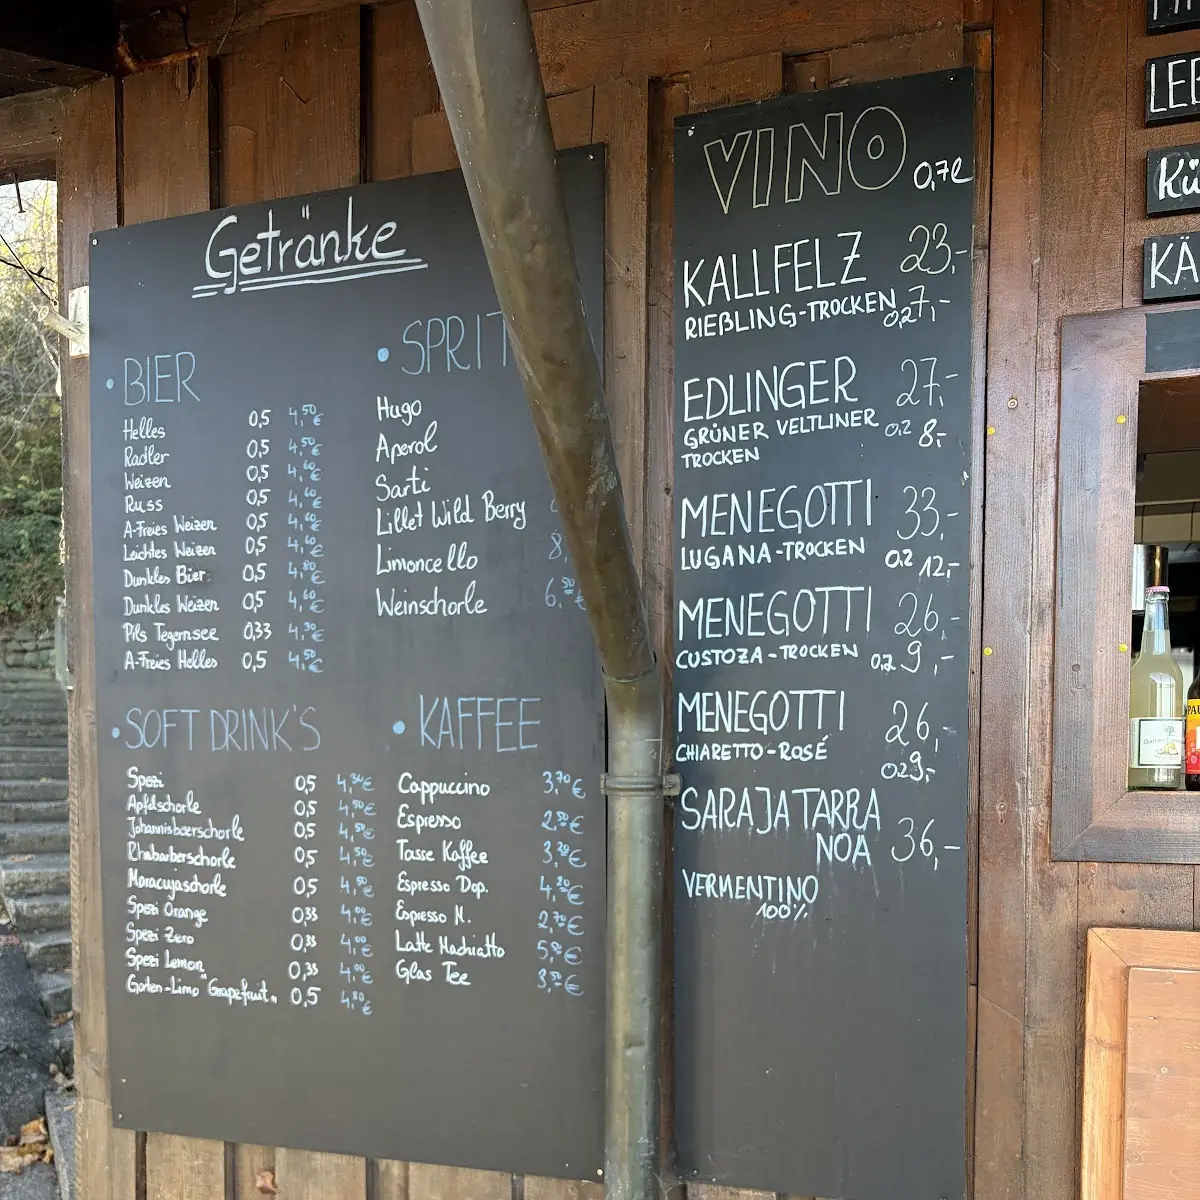 Getränke
• BIER
Helles 0,5 4,50€
Radler 0,5 4,50€
Weizen 0,5 4,60€
Russ 0,5 4,60€
A-Freies Weizen 0,5 4,60€
Leichtes Weizen 0,5 4,60€
Dunkles Bier 0,5 4,80€
Dunkles Weizen 0,5 4,60€
Pils Tegernsee 0,33 4,30€
A-Freies Helles 0,5 4,50€
• SPRIT
Hugo
Aperol
Sarti
Lillet Wild Berry
Limoncello 8,
Weinschorle 6,50€
• SOFT DRINK'S
Spezi 0,5 4,30€
Apfelschorle 0,5 4,50€
Johannisbeerschorle 0,5 4,50€
Rhabarberschorle 0,5 4,50€
Maracujaschorle 0,5 4,50€
Spezi Orange 0,33 4,00€
Spezi Zero 0,33 4,00€
Spezi Lemon 0,33 4,00€
Garten-Limo "Grapefruit" 0,5 4,80€
• KAFFEE
Cappuccino 3,70€
Espresso 2,50€
Tasse Kaffee 3,20€
Espresso Dop. 4,20€
Espresso M. 2,70€
Latte Machiatto 5,50€
Glas Tee 3,50€
VINO 0,7l
KALLFELZ 23,-
RIEßLING-TROCKEN 0,2 7,-
EDLINGER 27,-
GRÜNER VELTLINER 0,2 8,-
TROCKEN
MENEGOTTI 33,-
LUGANA-TROCKEN 0,2 12,-
MENEGOTTI 26,-
CUSTOZA-TROCKEN 0,2 9,-
MENEGOTTI 26,-
CHIARETTO-ROSÉ 0,2 9,-
SARAJATARRA
NOA 36,-
VERMENTINO
100%
LEB
Kü
KÄ